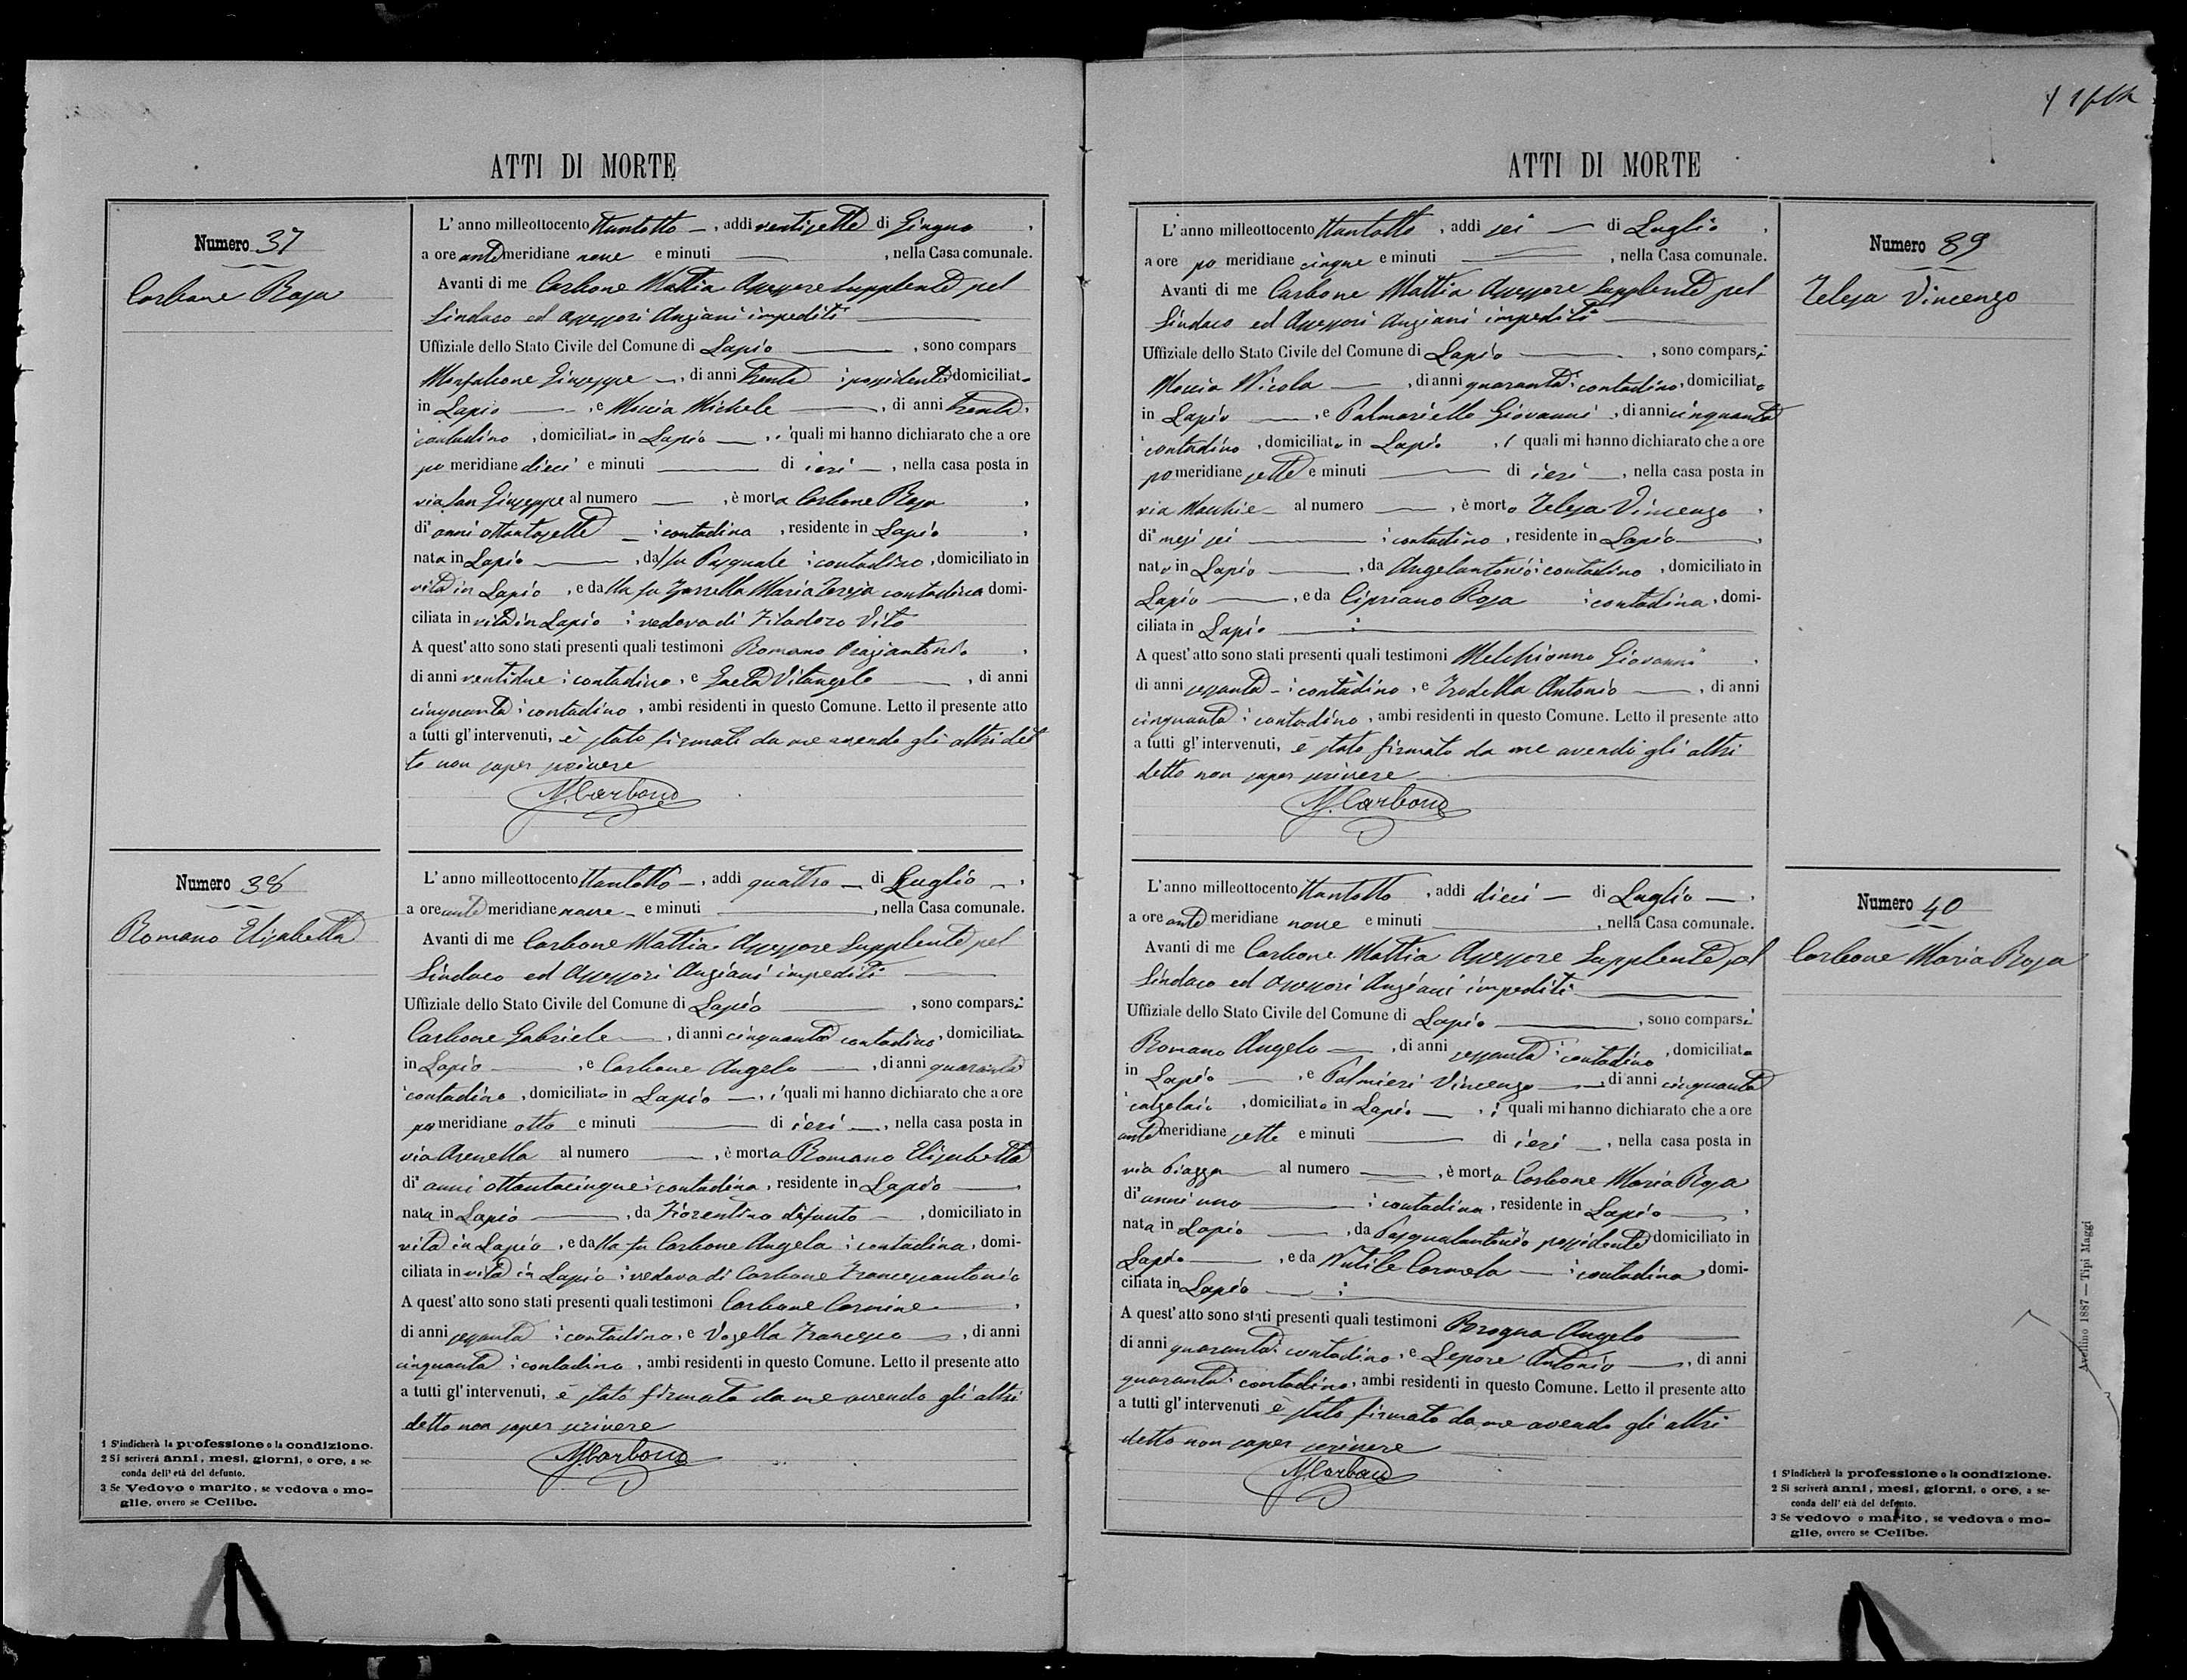 ATTI DI MORTE
Numero 37
Carbone Rosa
L' anno milleottocento ttantotto, addì ventisette di Giugno,
a ore ante meridiane nove e minuti , nella Casa comunale.
Avanti di me Carbone Mattia Assessore Supplente pel
Sindaco ed Assessori Anziani impediti
Uffiziale dello Stato Civile del Comune di Lapio , sono compars
Monfalcone Giuseppe , di anni trenta possidente domiciliato
in Lapio , e Moccia Michele , di anni trenta,
contadino , domiciliato in Lapio , i quali mi hanno dichiarato che a ore
po meridiane dieci e minuti di ieri , nella casa posta in
via San Giuseppe al numero , è morta Carbone Rosa ,
di anni ottantasette contadina , residente in Lapio ,
nata in Lapio , dal fu Pasquale contadino , domiciliato in
vita in Lapio , e dalla fu Maria Teresa contadina domi-
ciliata in vita in Lapio vedova di Vito
A quest' atto sono stati presenti quali testimoni Romano ,
di anni ventidue contadino , e Gaeta Vitangelo , di anni
cinquanta contadino , ambi residenti in questo Comune. Letto il presente atto
a tutti gl' intervenuti, è stato firmato da me avendo gli altri det
to non saper scrivere
M. Carbone
Numero 38
Romano Elisabetta
L' anno milleottocento ttantotto , addì quattro di Luglio ,
a ore ante meridiane nove e minuti , nella Casa comunale.
Avanti di me Carbone Mattia Assessore Supplente pel
Sindaco ed Assessori Anziani impediti
Uffiziale dello Stato Civile del Comune di Lapio , sono comparsi
Carbone Gabriele , di anni cinquanta contadino , domiciliato
in Lapio , e Carbone Angelo , di anni quaranta
contadino , domiciliato in Lapio , i quali mi hanno dichiarato che a ore
po meridiane otto e minuti di ieri , nella casa posta in
via Arenella al numero , è morta Romano Elisabetta
di anni ottantacinque contadina , residente in Lapio ,
nata in Lapio , da Fiorentino difunto , domiciliato in
vita in Lapio , e dalla fu Carbone Angela contadina , domi-
ciliata in vita in Lapio vedova di Carbone Francescantonio
A quest' atto sono stati presenti quali testimoni Carbone Carmine ,
di anni sessanta contadino , e Vosella Francesco , di anni
cinquanta contadino , ambi residenti in questo Comune. Letto il presente atto
a tutti gl' intervenuti, è stato firmato da me avendo gli altri
detto non saper scrivere
M. Carbone
1 S'indicherà la professione o la condizione.
2 Si scriverà anni, mesi, giorni, o ore, a se-
conda dell' età del defunto.
3 Se Vedovo o marito, se vedova o mo-
glie, ovvero se Celibe.
ATTI DI MORTE
Numero 39
Telesa Vincenzo
L' anno milleottocento ttantotto , addì sei di Luglio ,
a ore po meridiane cinque e minuti , nella Casa comunale.
Avanti di me Carbone Mattia Assessore Supplente pel
Sindaco ed Assessori Anziani impediti
Uffiziale dello Stato Civile del Comune di Lapio , sono comparsi
Moccia Nicola , di anni quaranta contadino , domiciliato
in Lapio , e Palmariello Giovanni , di anni cinquanta
contadino , domiciliato in Lapio , i quali mi hanno dichiarato che a ore
po meridiane sette e minuti di ieri , nella casa posta in
via Macchie al numero , è morto Telesa Vincenzo ,
di mesi sei contadino , residente in Lapio ,
nato in Lapio , da Angelantonio contadino , domiciliato in
Lapio , e da Cipriano Rosa contadina , domi-
ciliata in Lapio
A quest' atto sono stati presenti quali testimoni Melchionno Giovanni ,
di anni sessanta contadino , e Antonio , di anni
cinquanta contadino , ambi residenti in questo Comune. Letto il presente atto
a tutti gl' intervenuti, è stato firmato da me avendo gli altri
detto non saper scrivere
M. Carbone
Numero 40
Carbone Maria Rosa
L' anno milleottocento ttantotto , addì dieci di Luglio ,
a ore ante meridiane nove e minuti , nella Casa comunale.
Avanti di me Carbone Mattia Assessore Supplente pel
Sindaco ed Assessori Anziani impediti
Uffiziale dello Stato Civile del Comune di Lapio , sono comparsi
Romano Angelo , di anni sessanta contadino , domiciliato
in Lapio , e Palmieri Vincenzo , di anni cinquanta
calzolaio , domiciliato in Lapio , i quali mi hanno dichiarato che a ore
ante meridiane sette e minuti di ieri , nella casa posta in
via Piazza al numero , è morta Carbone Maria Rosa
di anni uno contadina , residente in Lapio ,
nata in Lapio , da Pasqualantonio possidente domiciliato in
Lapio , e da Nutile Carmela contadina , domi-
ciliata in Lapio
A quest' atto sono stati presenti quali testimoni Borogna Angelo
di anni quaranta contadino , e Lepore Antonio , di anni
quaranta contadino , ambi residenti in questo Comune. Letto il presente atto
a tutti gl' intervenuti è stato firmato da me avendo gli altri
detto non saper scrivere
M. Carbone
1 S'indicherà la professione o la condizione.
2 Si scriverà anni, mesi, giorni, o ore, a se-
conda dell' età del defunto.
3 Se vedovo o marito, se vedova o mo-
glie, ovvero se Celibe.
Avellino 1887 — Tipi Maggi